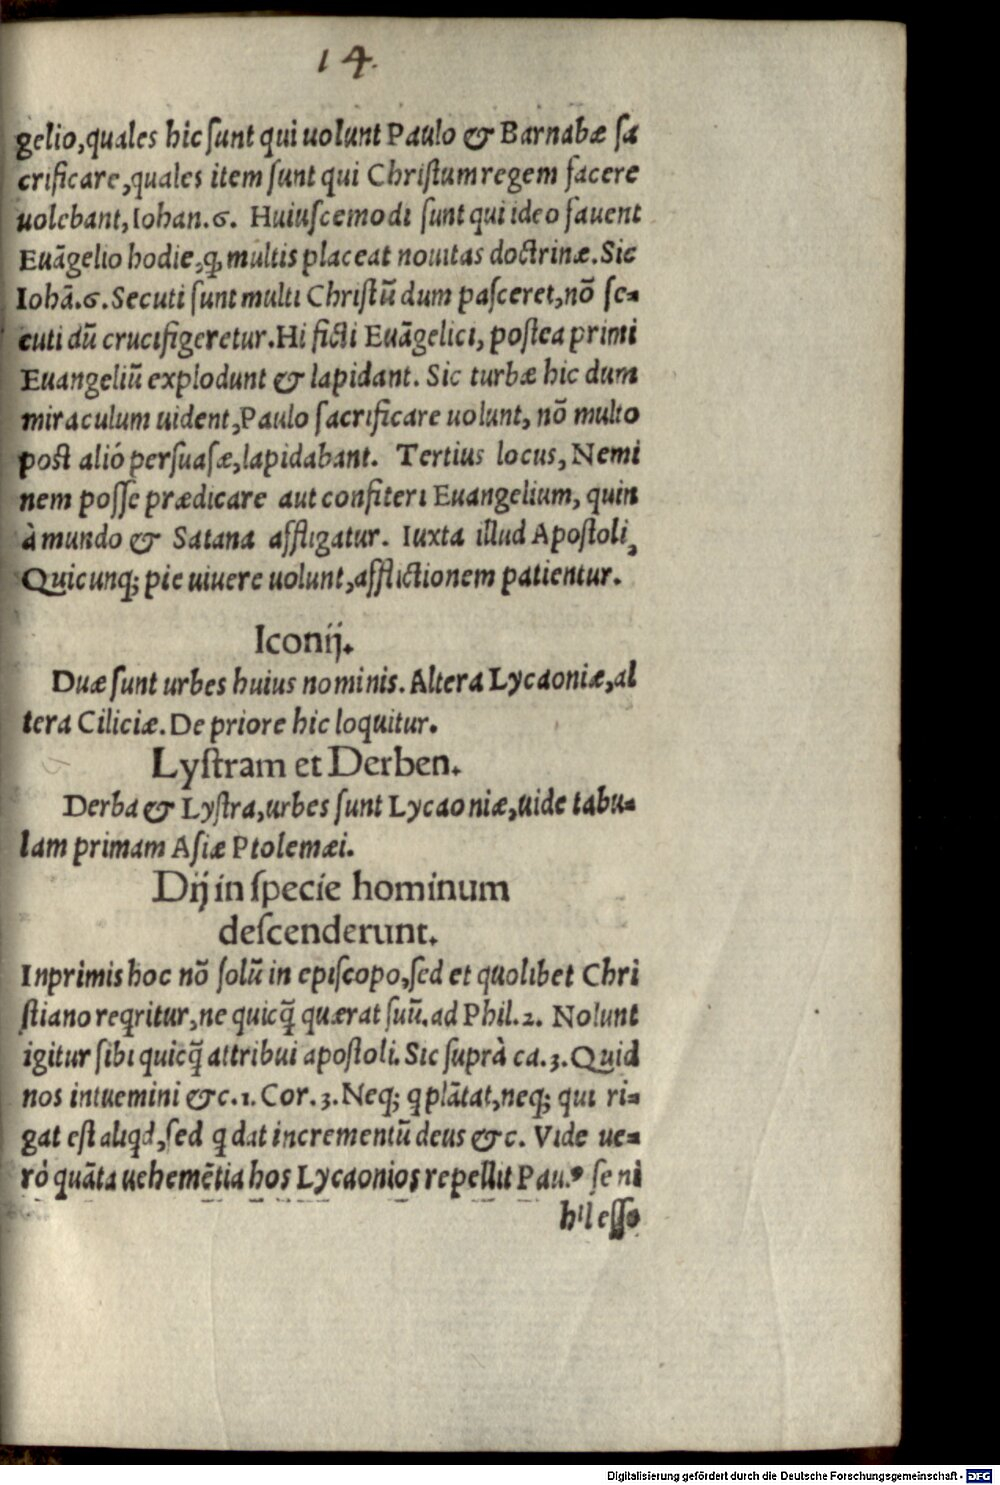 14.
gelio,quales hic ſunt qui uolunt Paulo & Barnabæ ſa
crificare,quales item ſunt qui Chriſtum regem facere
uolebant,Iohan.6. Huiuſcemodi ſunt qui ideo fauent
Euãgelio hodie,q, multis placeat nouitas doctrinæ.Sic
Iohã.6.Secuti ſunt multi Chriſtũ dum paſceret,nõ ſe-
cuti dũ crucifigeretur.Hi ficti Euãgelici, poſtea primi
Euangeliũ explodunt & lapidant. Sic turbæ hic dum
miraculum uident,Paulo ſacrificare uolunt, nõ multo
poſt alió perſuaſæ,lapidabant. Tertius locus, Nemi
nem poſſe prædicare aut confiteri Euangelium, quin
à mundo & Satana affligatur. Iuxta illud Apoſtoli,
Quicunq; pie uiuere uolunt,afflictionem patientur.
Iconij.
Duæ ſunt urbes huius nominis. Altera Lycaoniæ,al
tera Ciliciæ. De priore hic loquitur.
Lyſtram et Derben.
Derba & Lyſtra,urbes ſunt Lycaoniæ,uide tabu-
lam primam Aſiæ Ptolemæi.
Dij in ſpecie hominum
deſcenderunt.
Inprimis hoc nõ ſolũ in epiſcopo,ſed et quolibet Chri
ſtiano reqritur,ne quicq̃ quærat ſuũ.ad Phil.2. Nolunt
igitur ſibi quicq̃ attribui apoſtoli. Sic ſuprà ca.3.Quid
nos intuemini &c.1. Cor.3. Neq; q plãtat,neq; qui ri-
gat eſt aliqd,ſed q dat incrementũ deus &c. Vide ue-
rò quãta uehemẽtia hos Lycaonios repellit Pau.⁹ ſe ni
hil eſſe
Digitalisierung gefördert durch die Deutsche Forschungsgemeinschaft - DFG